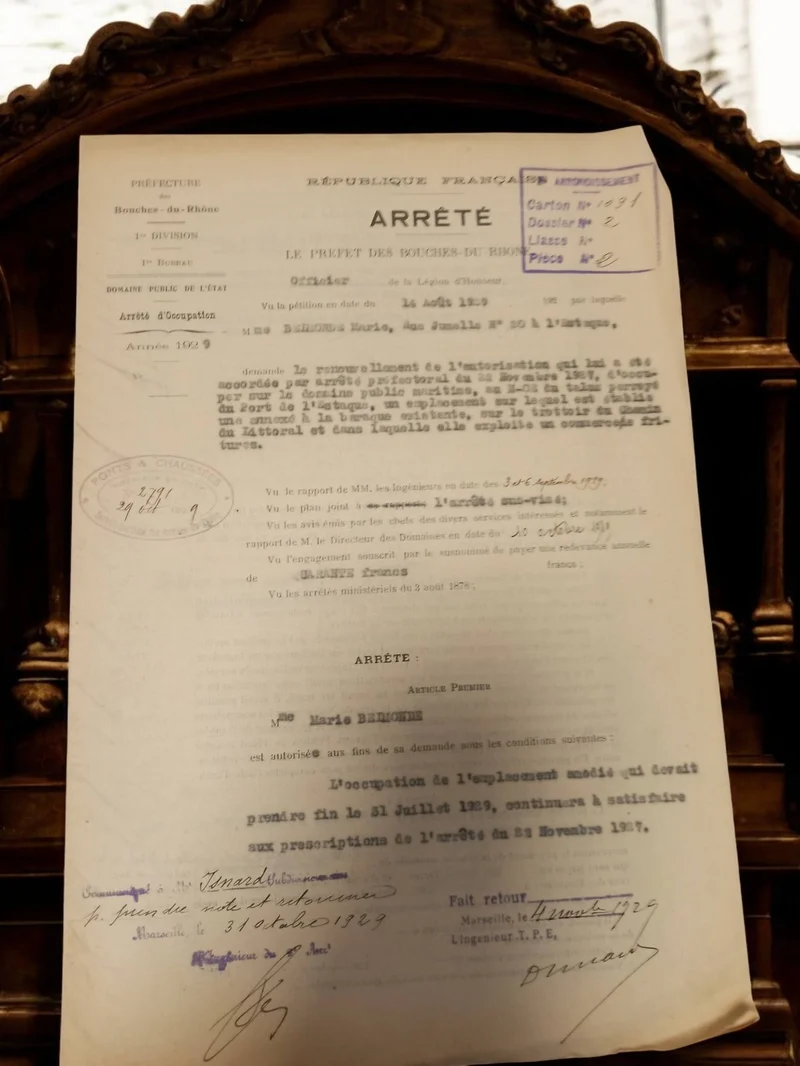 PRÉFECTURE
des
Bouches-du-Rhône
1re DIVISION
1er BUREAU
DOMAINE PUBLIC DE L'ÉTAT
Arrêté d'Occupation
Année 1929
N°
RÉPUBLIQUE FRANÇAISE
ARRÊTÉ
LE PREFET DES BOUCHES-DU-RHONE
ARRONDISSEMENT
Carton N° 1091
Dossier N° 2
Liasse N°
Pièce N° 2
Officier de la Légion d'Honneur,
Vu la pétition en date du 14 Août 1929 par laquelle
Mme BELMONDE Marie, Rue Jumelle N° 20 à l'Estaque,
demande le renouvellement de l'autorisation qui lui a été
accordée par arrêté préfectoral du 22 Novembre 1927, d'occu-
per sur le domaine public maritime, au du talus perreyé
du Port de l'Estaque, un emplacement sur lequel est établie
une annexe à la baraque existante, sur le trottoir du Chemin
du Littoral et dans laquelle elle exploite un commerce de fri-
tures.
PONTS & CHAUSSÉES
2791
29 oct 9
Vu le rapport de MM. les Ingénieurs en date des 3 et 6 septembre 1929,
Vu le plan joint à l'arrêté sus-visé;
Vu les avis émis par les chefs des divers services intéressés et notamment le
rapport de M. le Directeur des Domaines en date du 20 octobre
Vu l'engagement souscrit par le susnommé de payer une redevance annuelle
de QUARANTE francs francs ;
Vu les arrêtés ministériels du 3 août 1878 ;
ARRÊTE :
ARTICLE PREMIER
Mme Marie BELMONDE
est autorisée aux fins de sa demande sous les conditions suivantes :
L'occupation de l'emplacement amodié qui devait
prendre fin le 31 Juillet 1929, continuera à satisfaire
aux prescriptions de l'arrêté du 22 Novembre 1927.
Communiqué à Mr Isnard
p. prendre note et retourner
Marseille, le 31 Octobre 1929
L'Ingénieur du Arrt
Fait retour
Marseille, le 4 novbre 1929
L'Ingénieur T.P.E.